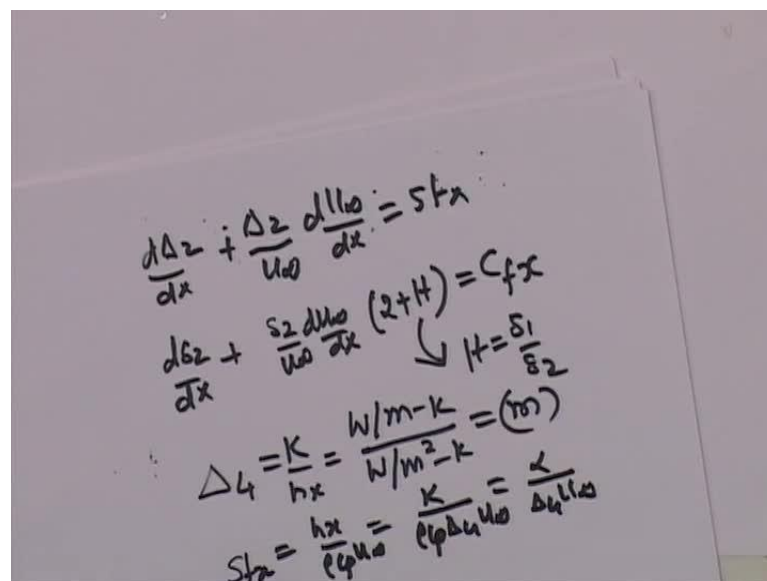 dΔ₂/dx + Δ₂/U∞ dU∞/dx = Stx
dδ₂/dx + δ₂/U∞ dU∞/dx (2+H) = Cfx
H = δ₁/δ₂
Δ₄ = K/hx = W/m-K / W/m²-K = (m)
Stx = hx/ρCpU∞ = K/ρCpΔ₄U∞ = α/Δ₄U∞